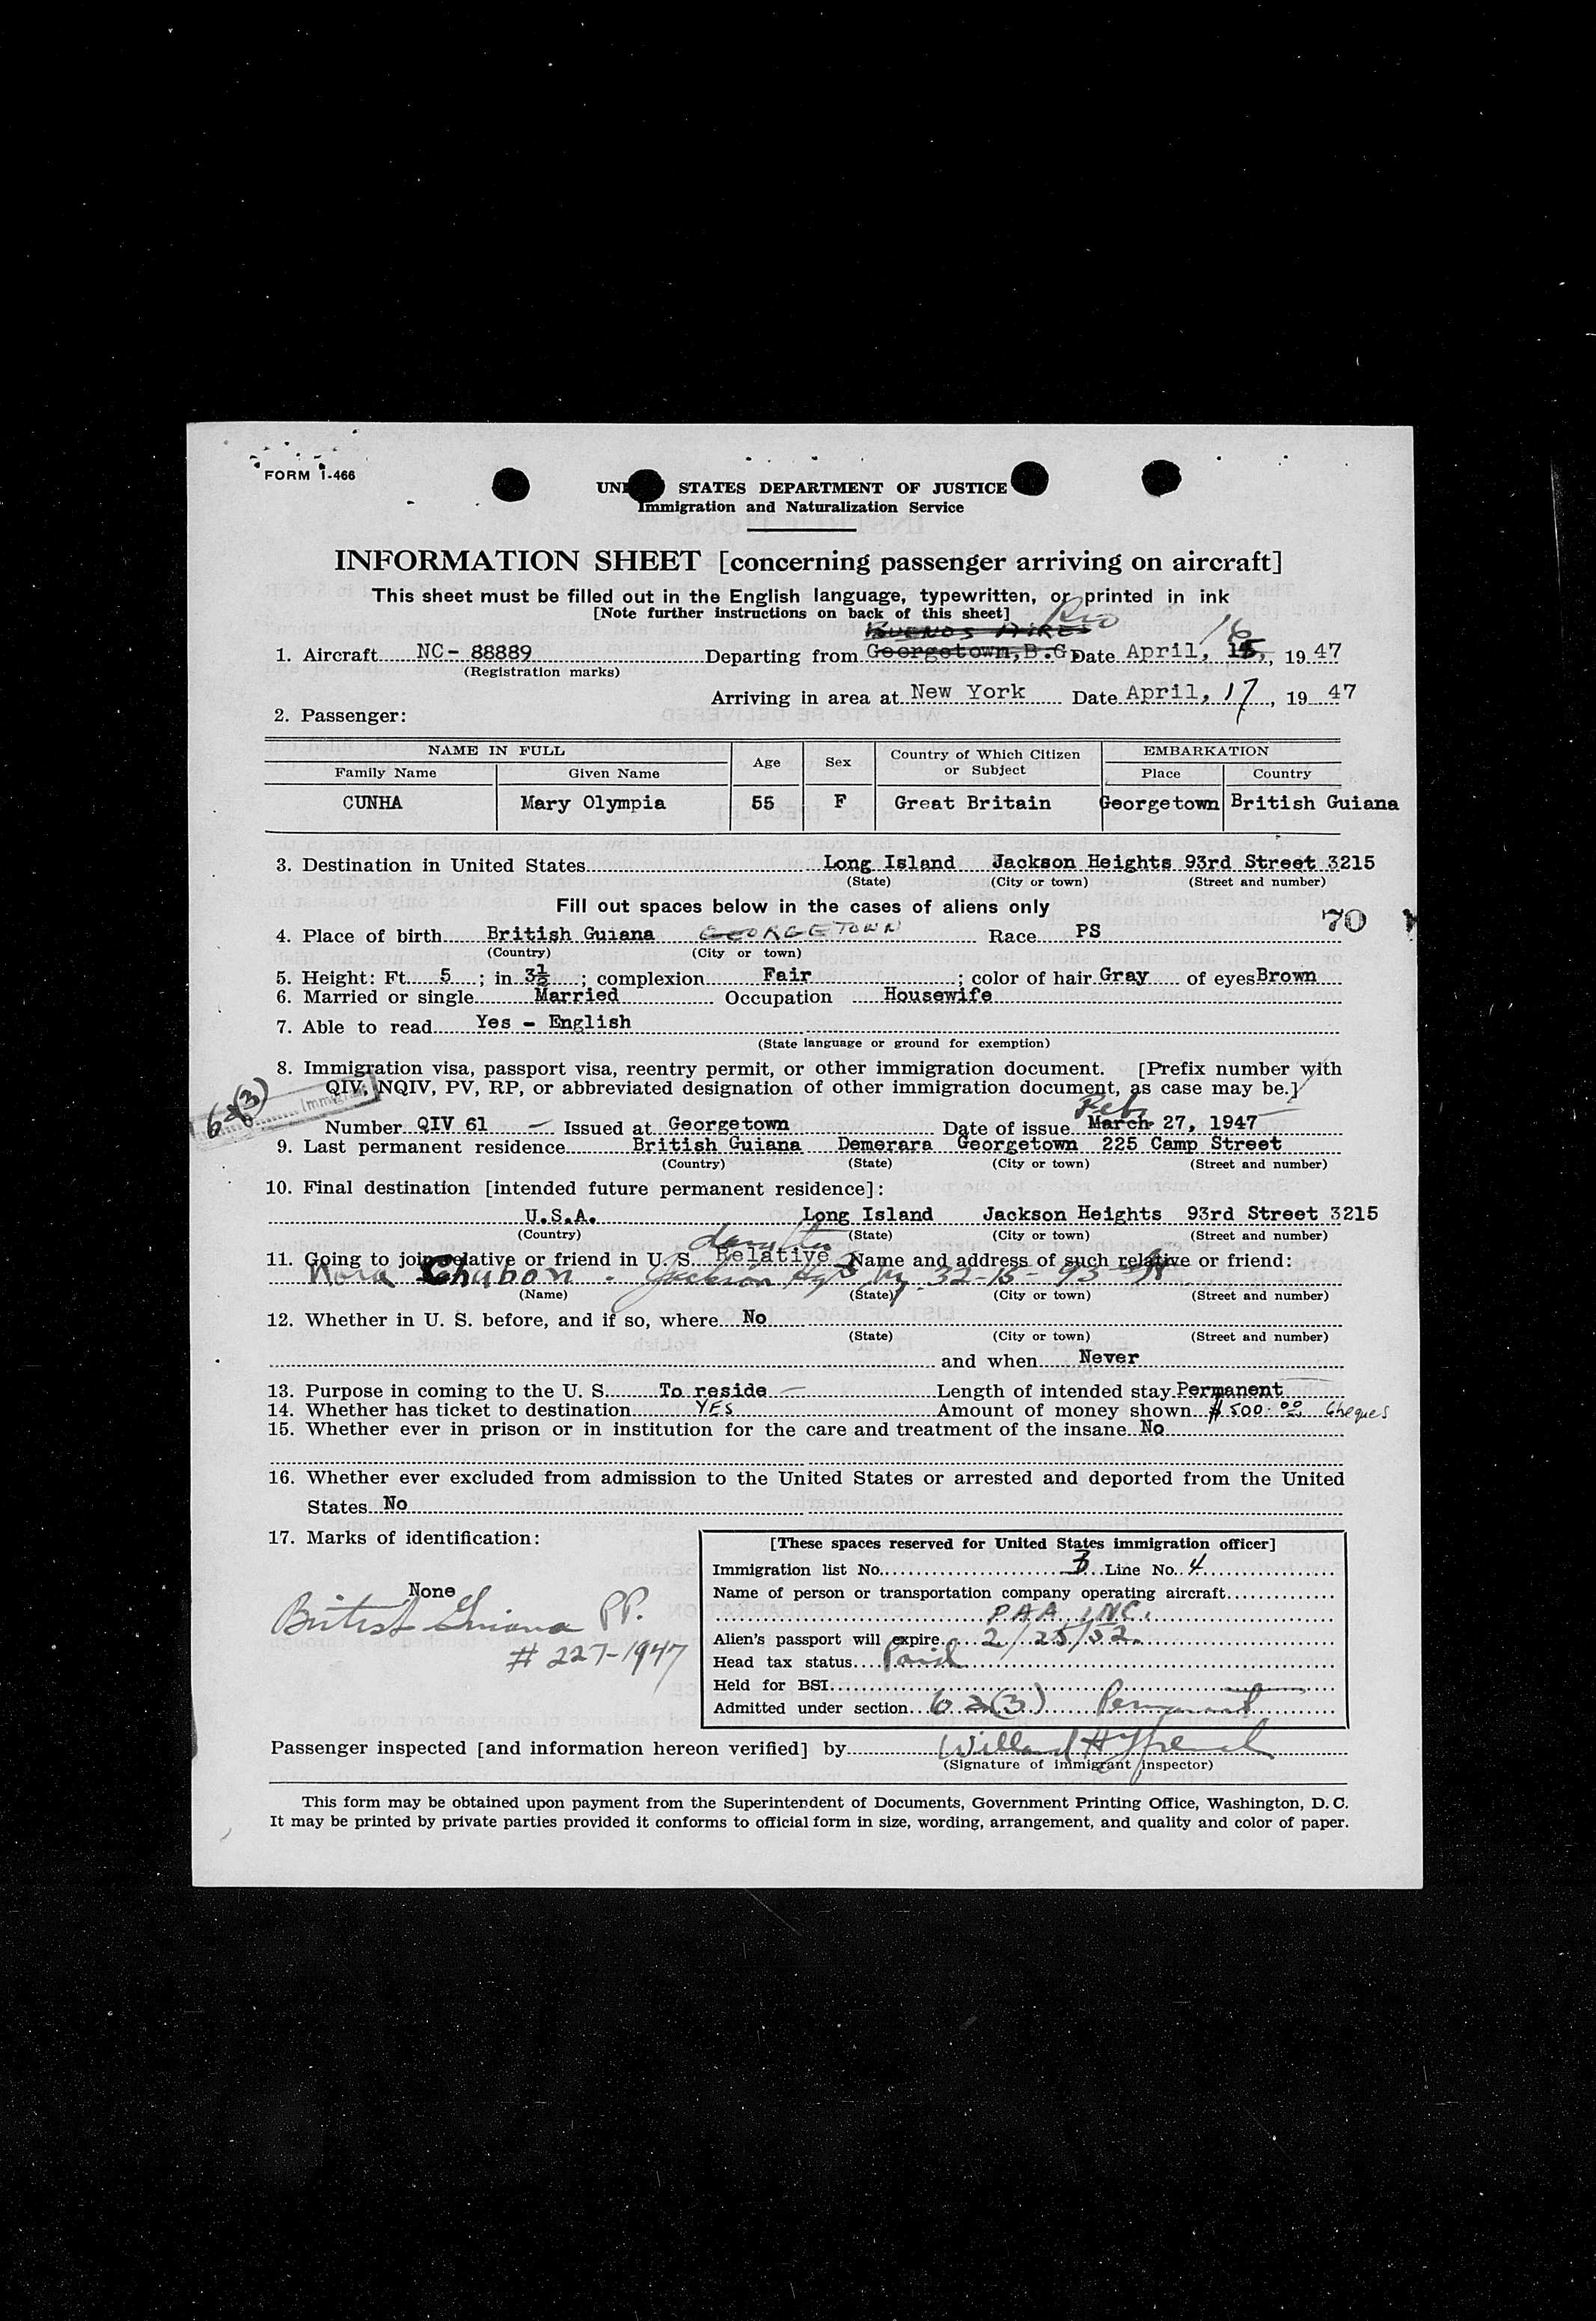 FORM I-466
UNI STATES DEPARTMENT OF JUSTICE
Immigration and Naturalization Service
INFORMATION SHEET [concerning passenger arriving on aircraft]
This sheet must be filled out in the English language, typewritten, or printed in ink
[Note further instructions on back of this sheet]
Rio
BUENOS AIRES 16
1. Aircraft NC- 88889 Departing from Georgetown, B.G. Date April, 15, 1947
(Registration marks)
Arriving in area at New York Date April, 17, 1947
2. Passenger:
NAME IN FULL Age Sex Country of Which Citizen or Subject EMBARKATION
Family Name Given Name Place Country
CUNHA Mary Olympia 55 F Great Britain Georgetown British Guiana
3. Destination in United States Long Island Jackson Heights 93rd Street 3215
(State) (City or town) (Street and number)
Fill out spaces below in the cases of aliens only
70
4. Place of birth British Guiana GEORGETOWN Race PS
(Country) (City or town)
5. Height: Ft. 5 ; in 3½ ; complexion Fair ; color of hair Gray of eyes Brown
6. Married or single Married Occupation Housewife
7. Able to read Yes - English
(State language or ground for exemption)
8. Immigration visa, passport visa, reentry permit, or other immigration document. [Prefix number with
QIV, NQIV, PV, RP, or abbreviated designation of other immigration document, as case may be.]
Feb.
Number QIV 61 Issued at Georgetown Date of issue March 27, 1947
9. Last permanent residence British Guiana Demerara Georgetown 225 Camp Street
(Country) (State) (City or town) (Street and number)
10. Final destination [intended future permanent residence]:
U.S.A. Long Island Jackson Heights 93rd Street 3215
(Country) (State) (City or town) (Street and number)
daughter
11. Going to join relative or friend in U. S. Relative Name and address of such relative or friend:
Nora Chubon. Jackson Hgts Ny. 32-15-93 St
(Name) (State) (City or town) (Street and number)
12. Whether in U. S. before, and if so, where No
(State) (City or town) (Street and number)
and when Never
13. Purpose in coming to the U. S. To reside Length of intended stay Permanent
14. Whether has ticket to destination YES Amount of money shown $500.00 Cheques
15. Whether ever in prison or in institution for the care and treatment of the insane No
16. Whether ever excluded from admission to the United States or arrested and deported from the United
States No
17. Marks of identification:
None
British Guiana PP.
# 227-1947
[These spaces reserved for United States immigration officer]
Immigration list No. 3 Line No. 4
Name of person or transportation company operating aircraft
PAA INC.
Alien's passport will expire 2/25/52
Head tax status Paid
Held for BSI
Admitted under section 6a(3) Permanent
Passenger inspected [and information hereon verified] by
(Signature of immigrant inspector)
This form may be obtained upon payment from the Superintendent of Documents, Government Printing Office, Washington, D. C.
It may be printed by private parties provided it conforms to official form in size, wording, arrangement, and quality and color of paper.